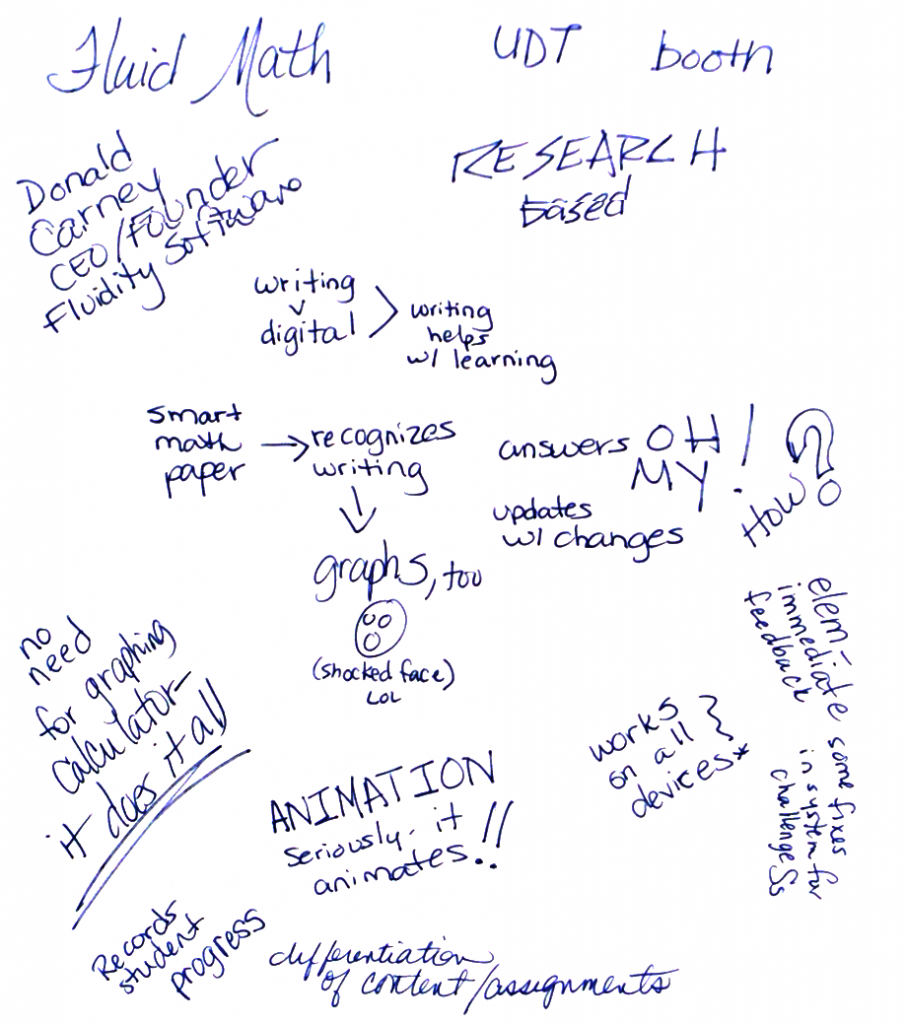 Fluid Math
UDT booth
Donald
Carney
CEO/Founder
Fluidity Software
RESEARCH
based
writing
v
digital
writing
helps
w/ learning
smart
math
paper
recognizes
writing
graphs, too
(shocked face)
LOL
answers OH
MY!
How?
updates
w/ changes
no
need
for graphing
calculator-
it does it all
elem-
immediate
feedback
works
on all
devices*
some fixes
in system for
challenge Ss
ANIMATION
seriously- it
animates..!!
Records
student
progress
differentiation
of content/assignments